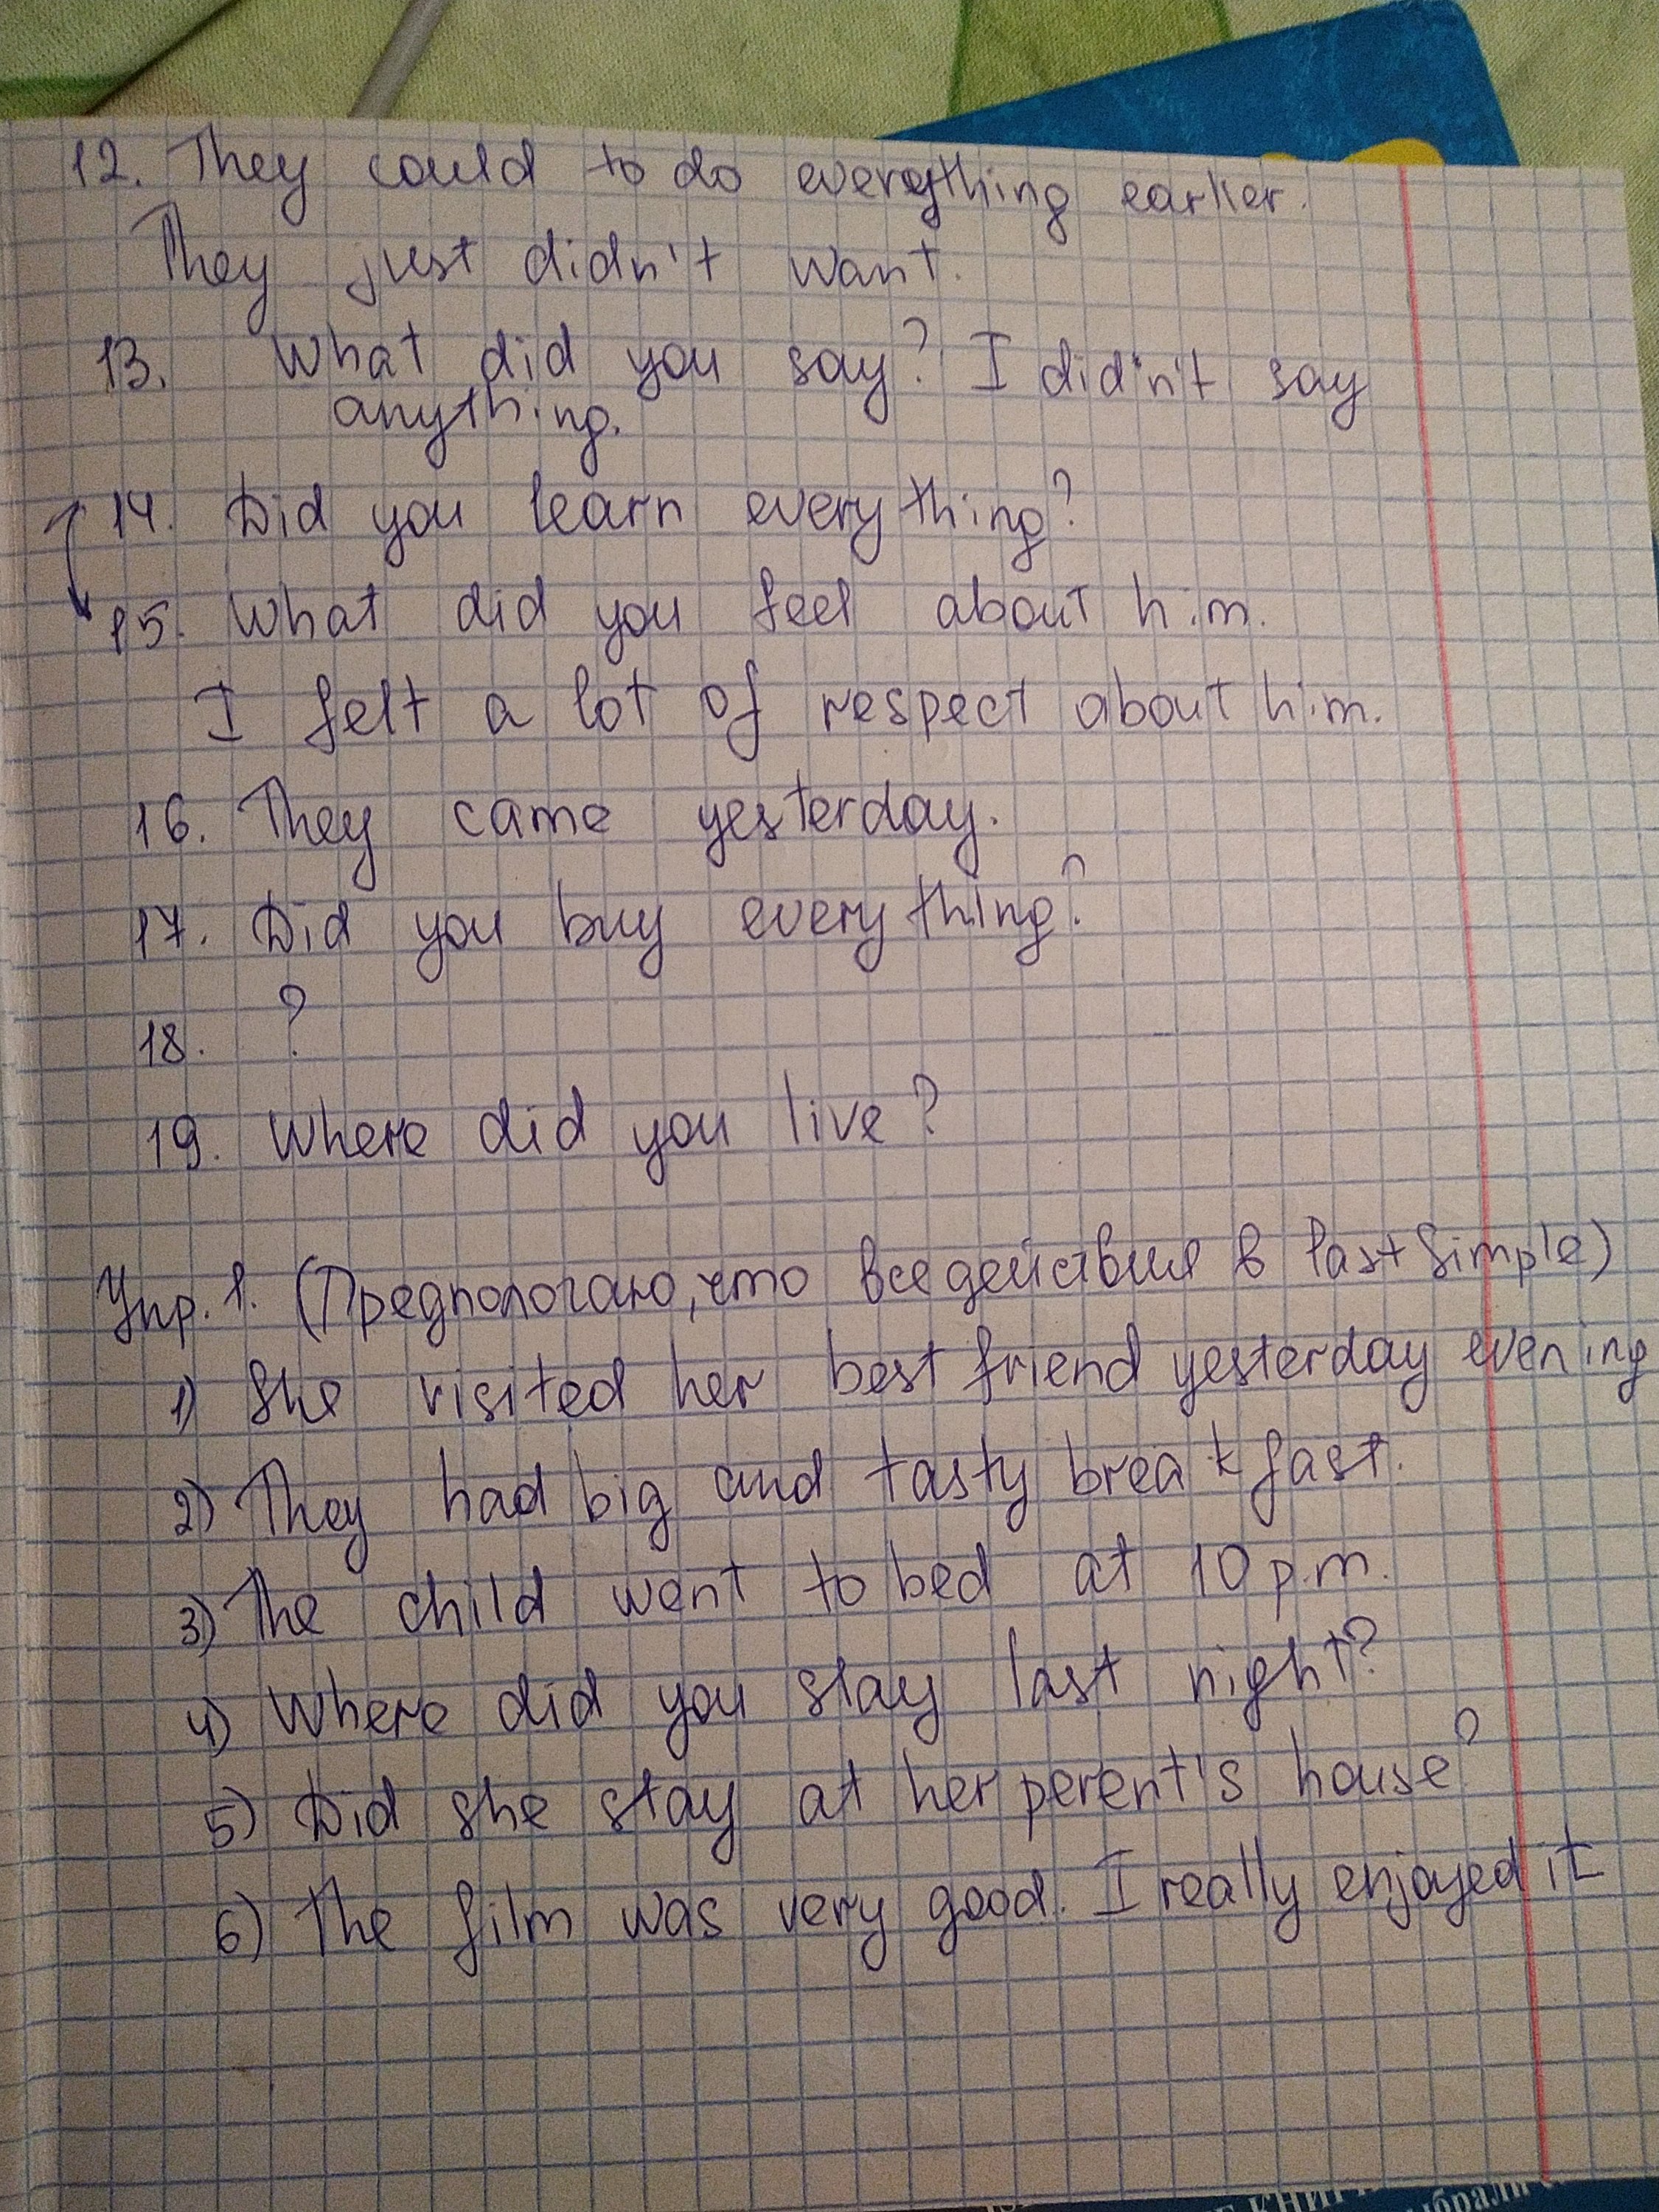 12. They could to do everything earlier.
They just didn't want.
13. What did you say? I didn't say
anything.
14. Did you learn everything?
15. What did you feel about him.
I felt a lot of respect about him.
16. They came yesterday.
17. Did you buy everything?
18. ?
19. Where did you live?
Упр. 1. (Предпологаю, что все действия в Past Simple)
1) She visited her best friend yesterday evening
2) They had big and tasty breakfast.
3) The child went to bed at 10 p.m.
4) Where did you stay last night?
5) Did she stay at her perent's house?
6) The film was very good. I really enjoyed it